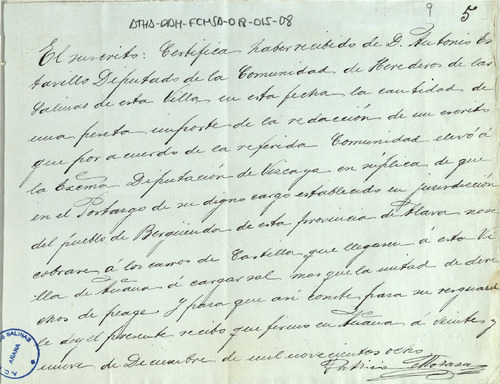 ATHA-DAH-FCMSA-OR-015-08
9
5
El suscrito: Certifica haber recibido de D. Antonio Es
tavillo Deputado de la Comunidad de Herederos de las
Salinas de esta Villa en esta fecha la cantidad de
una peseta importe de la redacción de un escrito
que por acuerdo de la referida Comunidad elevó á
la Excma Diputación de Vizcaya en súplica de que
en el Portazgo de su digno cargo establecido en jurisdicción
del pueblo de Bergüenda de esta provincia de Alava no se
cobrase á los carros de Castilla que lleguen á esta Vi
lla de Añana á cargar sal mas que la mitad de dere
chos de peage y para que asi conste para su resguardo
le doy el presente recibo que firmo en Añana á veinte y
nueve de Diciembre de mil novecientos ocho
Patricio
SALINAS
AÑANA